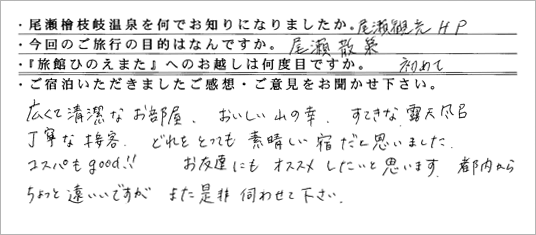 ・尾瀬檜枝岐温泉を何でお知りになりましたか。尾瀬観光HP
・今回のご旅行の目的はなんですか。 尾瀬散策
・『旅館ひのえまた』へのお越しは何度目ですか。 初めて
・ご宿泊いただきましたご感想・ご意見をお聞かせ下さい。
広くて清潔なお部屋、おいしい山の幸、すてきな露天風呂
丁寧な接客。どれをとっても素晴しい宿だと思いました。
コスパもgood!! お友達にもオススメしたいと思います。都内から
ちょっと遠いいですが また是非伺わせて下さい。